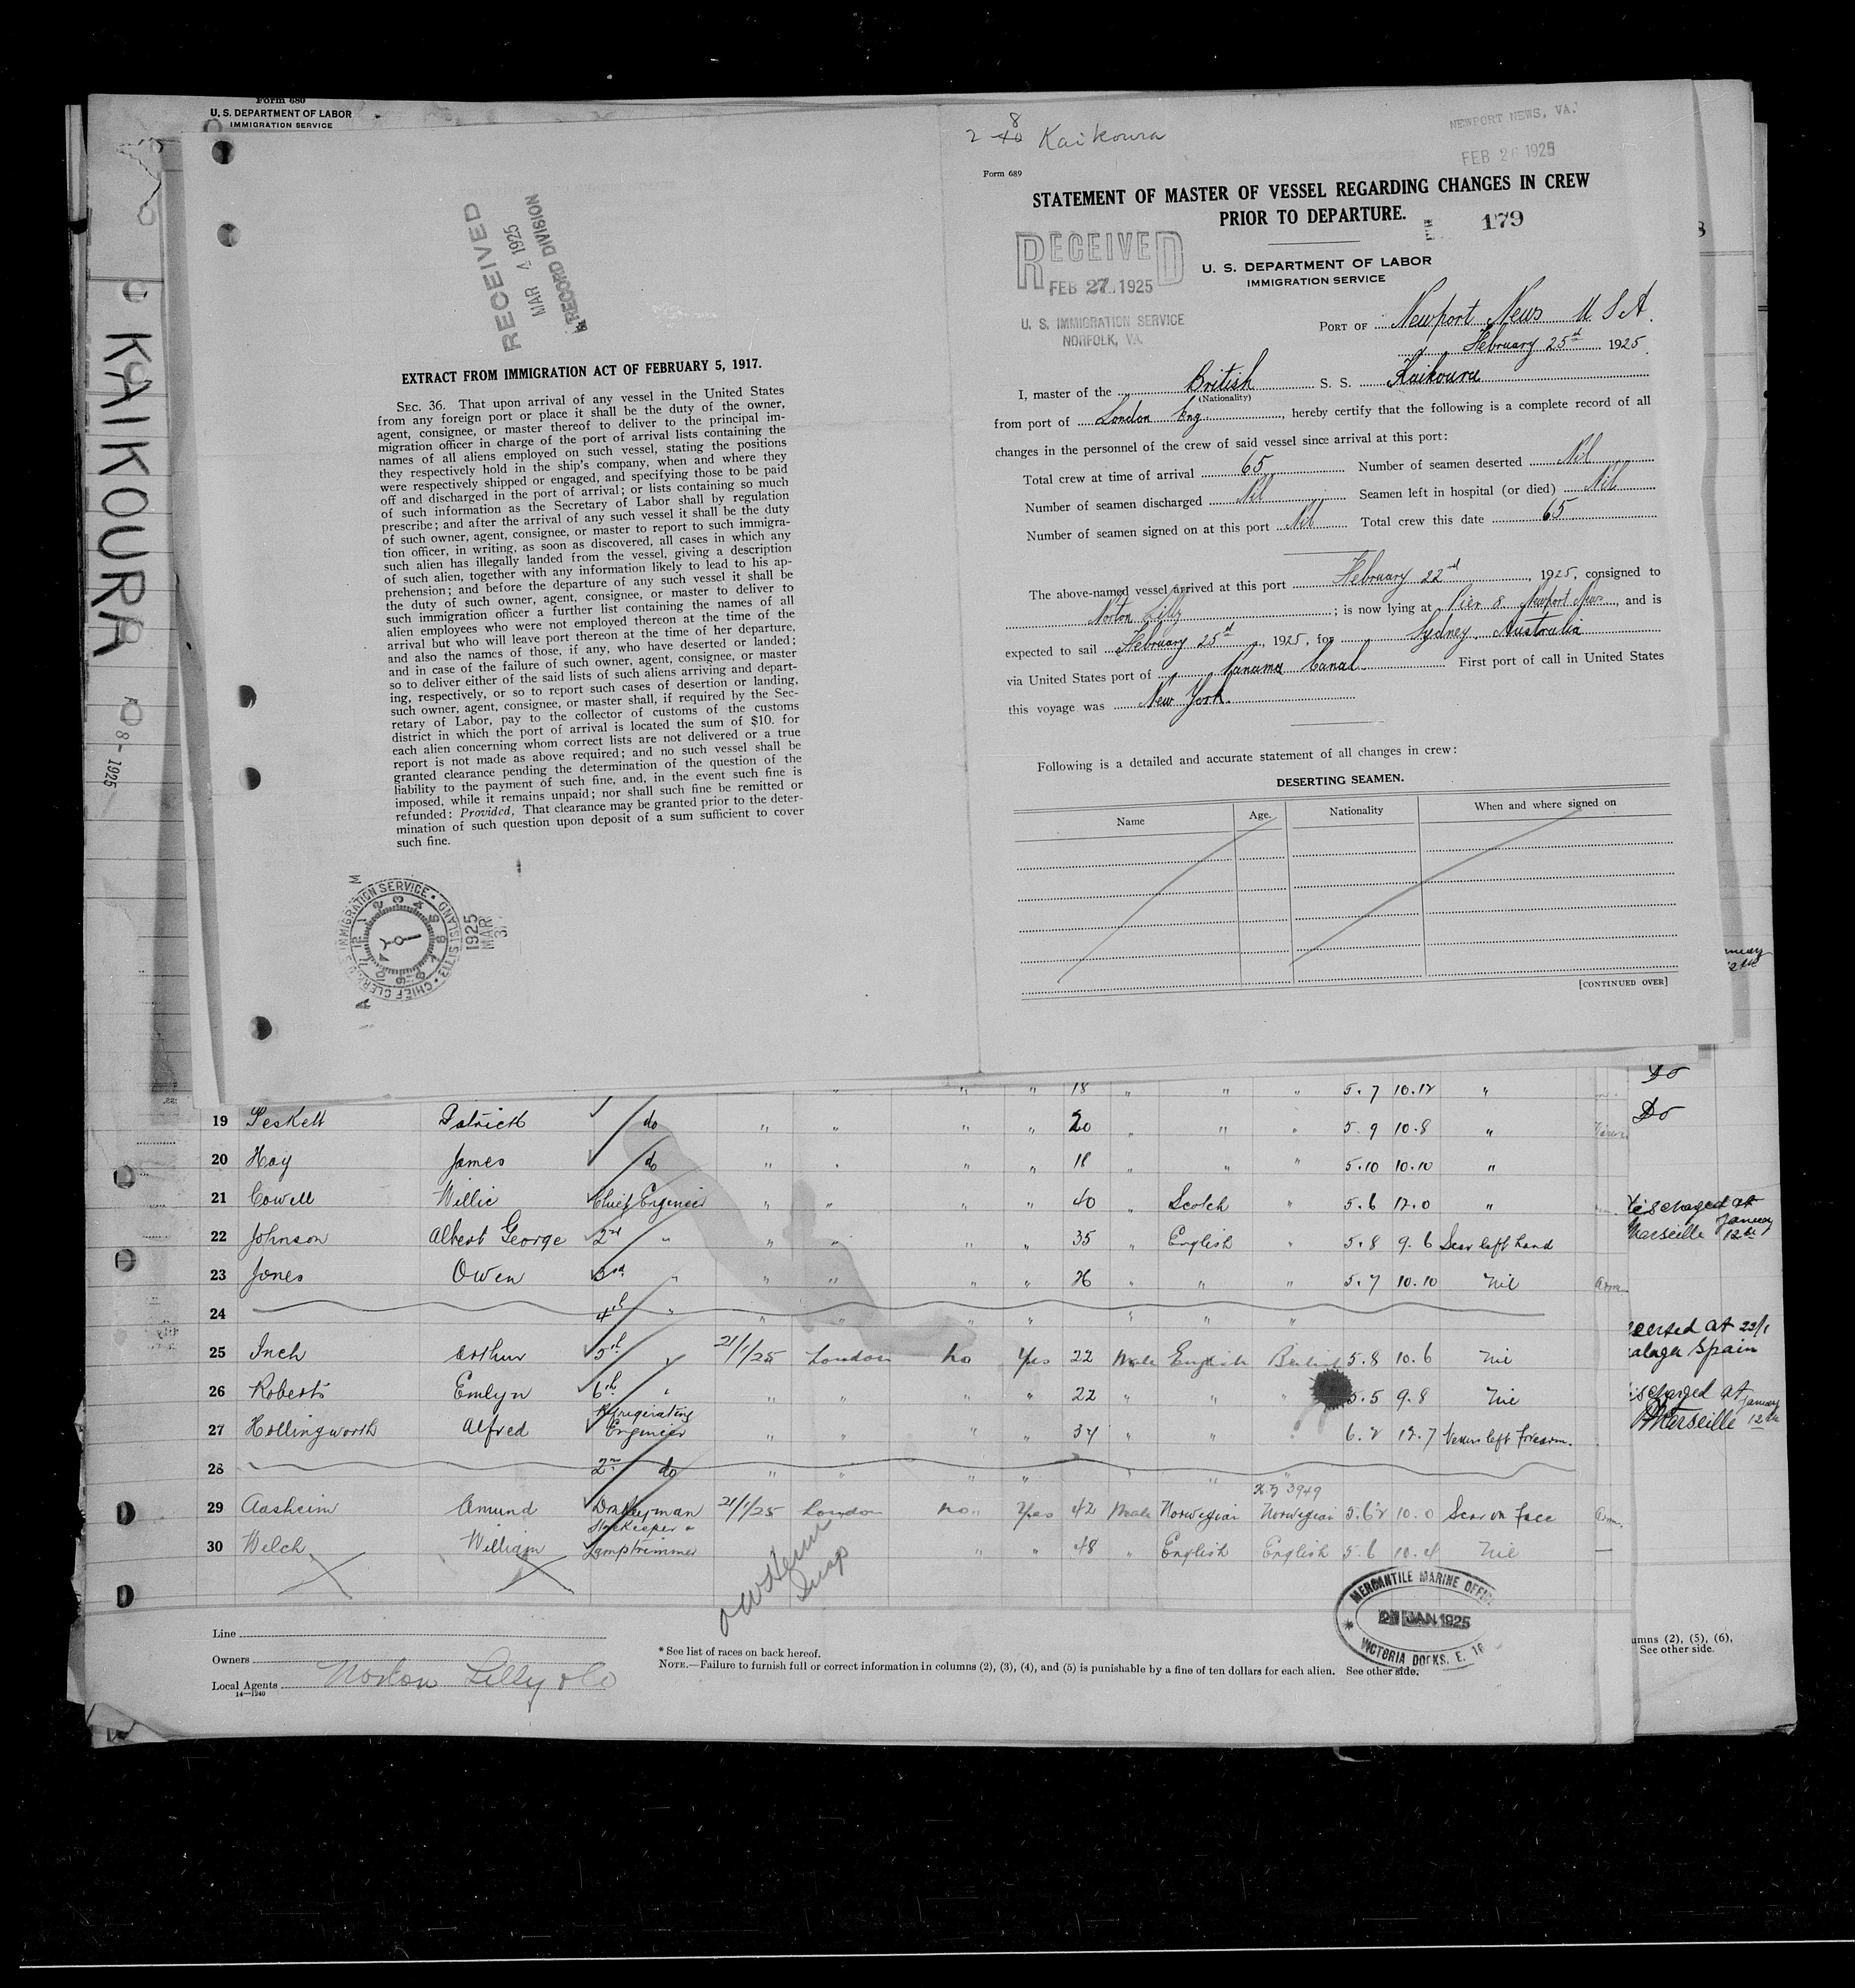 Form 680
U. S. DEPARTMENT OF LABOR
IMMIGRATION SERVICE
KAIKOURA
8-1925
RECEIVED
MAR 4 1925
RECORD DIVISION
EXTRACT FROM IMMIGRATION ACT OF FEBRUARY 5, 1917.
SEC. 36. That upon arrival of any vessel in the United States
from any foreign port or place it shall be the duty of the owner,
agent, consignee, or master thereof to deliver to the principal im-
migration officer in charge of the port of arrival lists containing the
names of all aliens employed on such vessel, stating the positions
they respectively hold in the ship's company, when and where they
were respectively shipped or engaged, and specifying those to be paid
off and discharged in the port of arrival; or lists containing so much
of such information as the Secretary of Labor shall by regulation
prescribe; and after the arrival of any such vessel it shall be the duty
of such owner, agent, consignee, or master to report to such immigra-
tion officer, in writing, as soon as discovered, all cases in which any
such alien has illegally landed from the vessel, giving a description
of such alien, together with any information likely to lead to his ap-
prehension; and before the departure of any such vessel it shall be
the duty of such owner, agent, consignee, or master to deliver to
such immigration officer a further list containing the names of all
alien employees who were not employed thereon at the time of the
arrival but who will leave port thereon at the time of her departure,
and also the names of those, if any, who have deserted or landed;
and in case of the failure of such owner, agent, consignee, or master
so to deliver either of the said lists of such aliens arriving and depart-
ing, respectively, or so to report such cases of desertion or landing,
such owner, agent, consignee, or master shall, if required by the Sec-
retary of Labor, pay to the collector of customs of the customs
district in which the port of arrival is located the sum of $10. for
each alien concerning whom correct lists are not delivered or a true
report is not made as above required; and no such vessel shall be
granted clearance pending the determination of the question of the
liability to the payment of such fine, and, in the event such fine is
imposed, while it remains unpaid; nor shall such fine be remitted or
refunded: Provided, That clearance may be granted prior to the deter-
mination of such question upon deposit of a sum sufficient to cover
such fine.
IMMIGRATION SERVICE
CHIEF CLERK
ELLIS ISLAND
1925
MAR
3
2 40 8 Kaikoura
NEWPORT NEWS, VA.
FEB 26 1925
Form 689
STATEMENT OF MASTER OF VESSEL REGARDING CHANGES IN CREW
PRIOR TO DEPARTURE.
179
RECEIVED
FEB 27 1925
U. S. IMMIGRATION SERVICE
NORFOLK, VA.
U. S. DEPARTMENT OF LABOR
IMMIGRATION SERVICE
PORT OF Newport News U S A.
February 25th 1925
I, master of the British S. S. Kaikoura
(Nationality)
from port of London Eng., hereby certify that the following is a complete record of all
changes in the personnel of the crew of said vessel since arrival at this port:
Total crew at time of arrival 65 Number of seamen deserted Nil
Number of seamen discharged Nil Seamen left in hospital (or died) Nil
Number of seamen signed on at this port Nil Total crew this date 65
The above-named vessel arrived at this port February 22nd, 1925, consigned to
Norton Lilly; is now lying at Pier 8 Newport News, and is
expected to sail February 25th, 1925, for Sydney, Australia
via United States port of Panama Canal. First port of call in United States
this voyage was New York.
Following is a detailed and accurate statement of all changes in crew:
DESERTING SEAMEN.
Name Age. Nationality When and where signed on
[CONTINUED OVER]
" " " 18 " " " 5.7 10.12 "
19 Peskett Patrick do " " " " 20 " " " 5.9 10.8 "
20 Hay James do " " " " 18 " " " 5.10 10.10 "
21 Cowell Willie Chief Engineer " " " " 40 " Scotch " 5.6 12.0 "
22 Johnson Albert George 2nd " " " " " 35 " English " 5.8 9.6 Scar left hand
23 Jones Owen 3rd " " " " " 26 " " " 5.7 10.10 Nil
24 4th " " " " " " " "
25 Inch Arthur 5th " 21/1/25 London No Yes 22 Male English British 5.8 10.6 Nil
26 Roberts Emlyn 6th " " " " 22 " " " 5.5 9.8 Nil
27 Hollingworth Alfred Refrigerating Engineer " " " " 34 " " 6.2 12.7 left forearm.
28 2nd do " " " " " " "
29 Aasheim Amund Donkeyman 21/1/25 London No Yes 42 Male Norwegian Norwegian 5.6½ 10.0 Scar on face
30 Welch William Storekeeper & Lamptrimmer " " 48 " English English 5.6 10.4 Nil
Do
Do
Discharged at
Marseille January 12th
at 22/1
Malaga Spain
Discharged at
Marseille January 12th
Insp
MERCANTILE MARINE OFFICE
21 JAN 1925
VICTORIA DOCKS, E. 16
Line
Owners
Local Agents Norton Lilly & Co
14—1240
* See list of races on back hereof.
NOTE.—Failure to furnish full or correct information in columns (2), (3), (4), and (5) is punishable by a fine of ten dollars for each alien. See other side.
umns (2), (5), (6),
See other side.